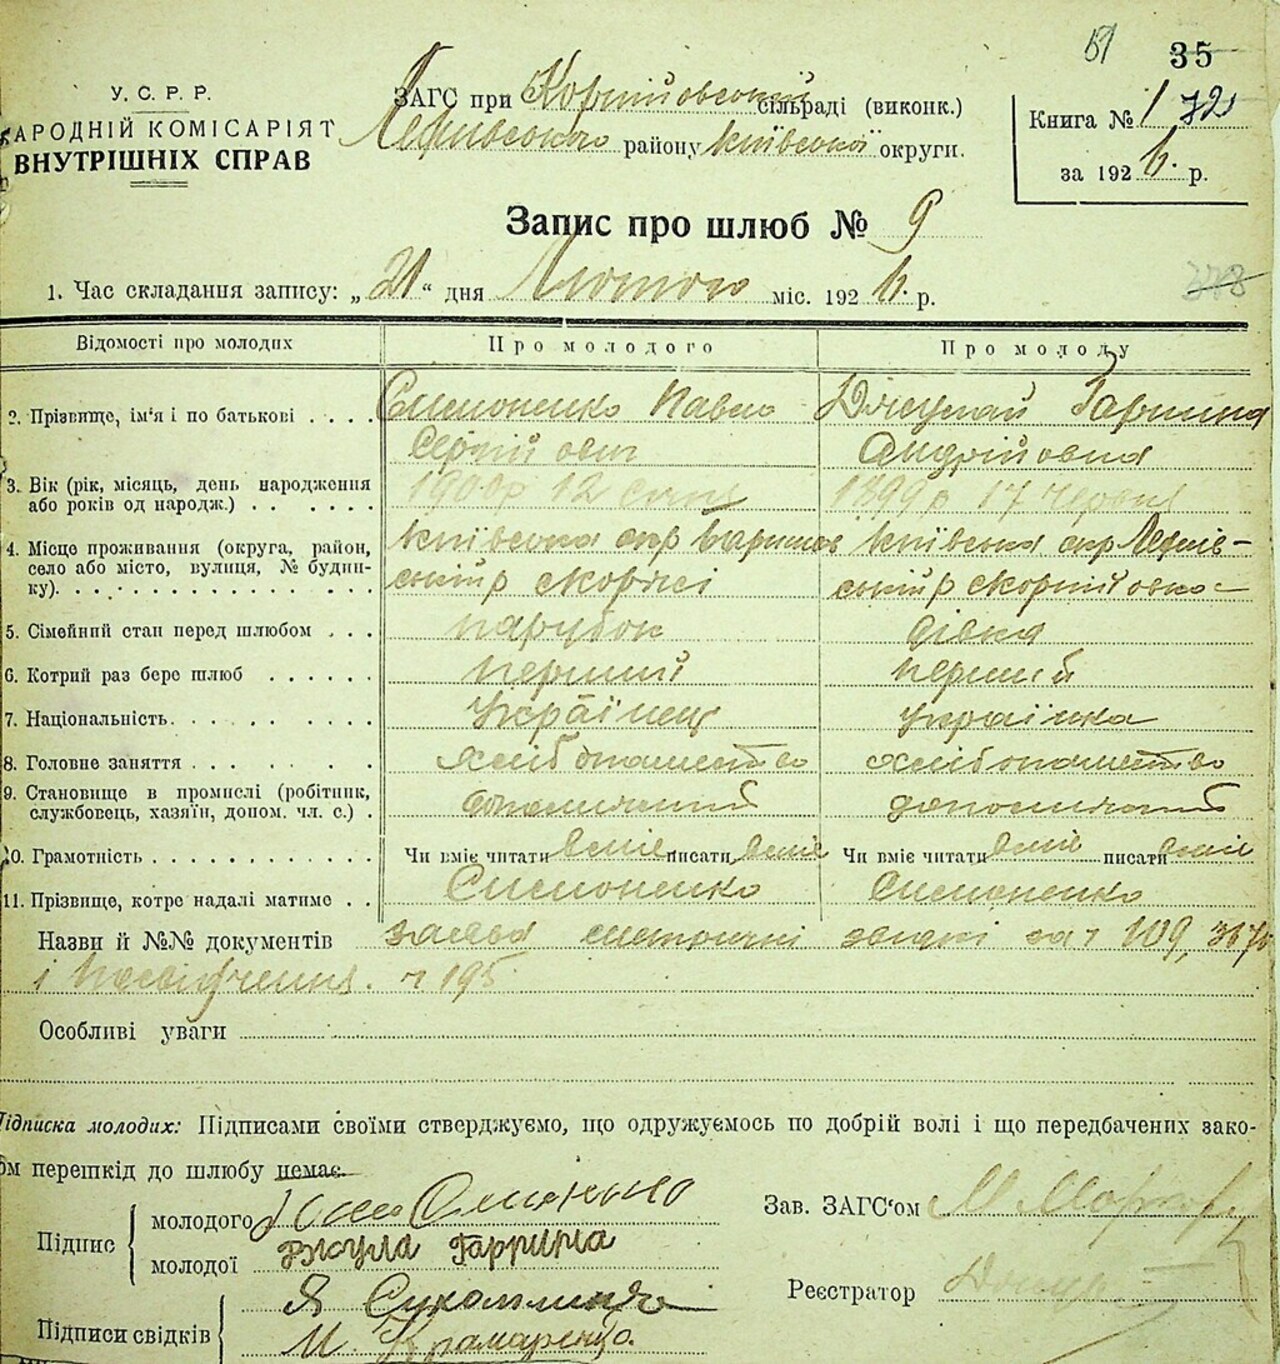 51 35
У. С. Р. Р.
НАРОДНІЙ КОМІСАРІЯТ
ВНУТРІШНІХ СПРАВ
ЗАГС при Корнійовський сільраді (виконк.)
району Київської округи.
Книга № 1
за 1926 р.
Запис про шлюб № 9
378
1. Час складання запису: „21“ дня Лютого міс. 1926. р.
Відомості про молодих Про молодого Про молоду
2. Прізвище, ім'я і по батькові . . . . Симоненко Павло Гаршина
Сергійович Андрійовна
3. Вік (рік, місяць, день народження
або років од народж.) . . . . . . 1900 р 12 січня 1899 р 17 Червня
4. Місце проживання (округа, район,
село або місто, вулиця, № будинку). Київська окр Київська окр
5. Сімейний стан перед шлюбом . . . парубок дівка
6. Котрий раз бере шлюб . . . . . . перший перший
7. Національність. . . . . . . . . Українец українка
8. Головне заняття . . . . . . . . хлібопашество хлібопашество
9. Становище в промислі (робітник,
службовець, хазяїн, допом. чл. с.) .
10. Грамотність . . . . . . . . . . . . Чи вміє читати вміє писати вміє Чи вміє читати вміє писати вміє
11. Прізвище, котре надалі матиме . . Симоненко Симоненко
Назви й №№ документів заява метричні 109, 3676
і посвідчення. ч 195
Особливі уваги
Підписка молодих: Підписами своїми стверджуємо, що одружуємось по добрій волі і що передбачених зако-
ом перешкід до шлюбу немає.
Підпис молодого
молодої Гаррина
Зав. ЗАГС'ом М
Реєстратор
Підписи свідків Я
И. Крамаренко.